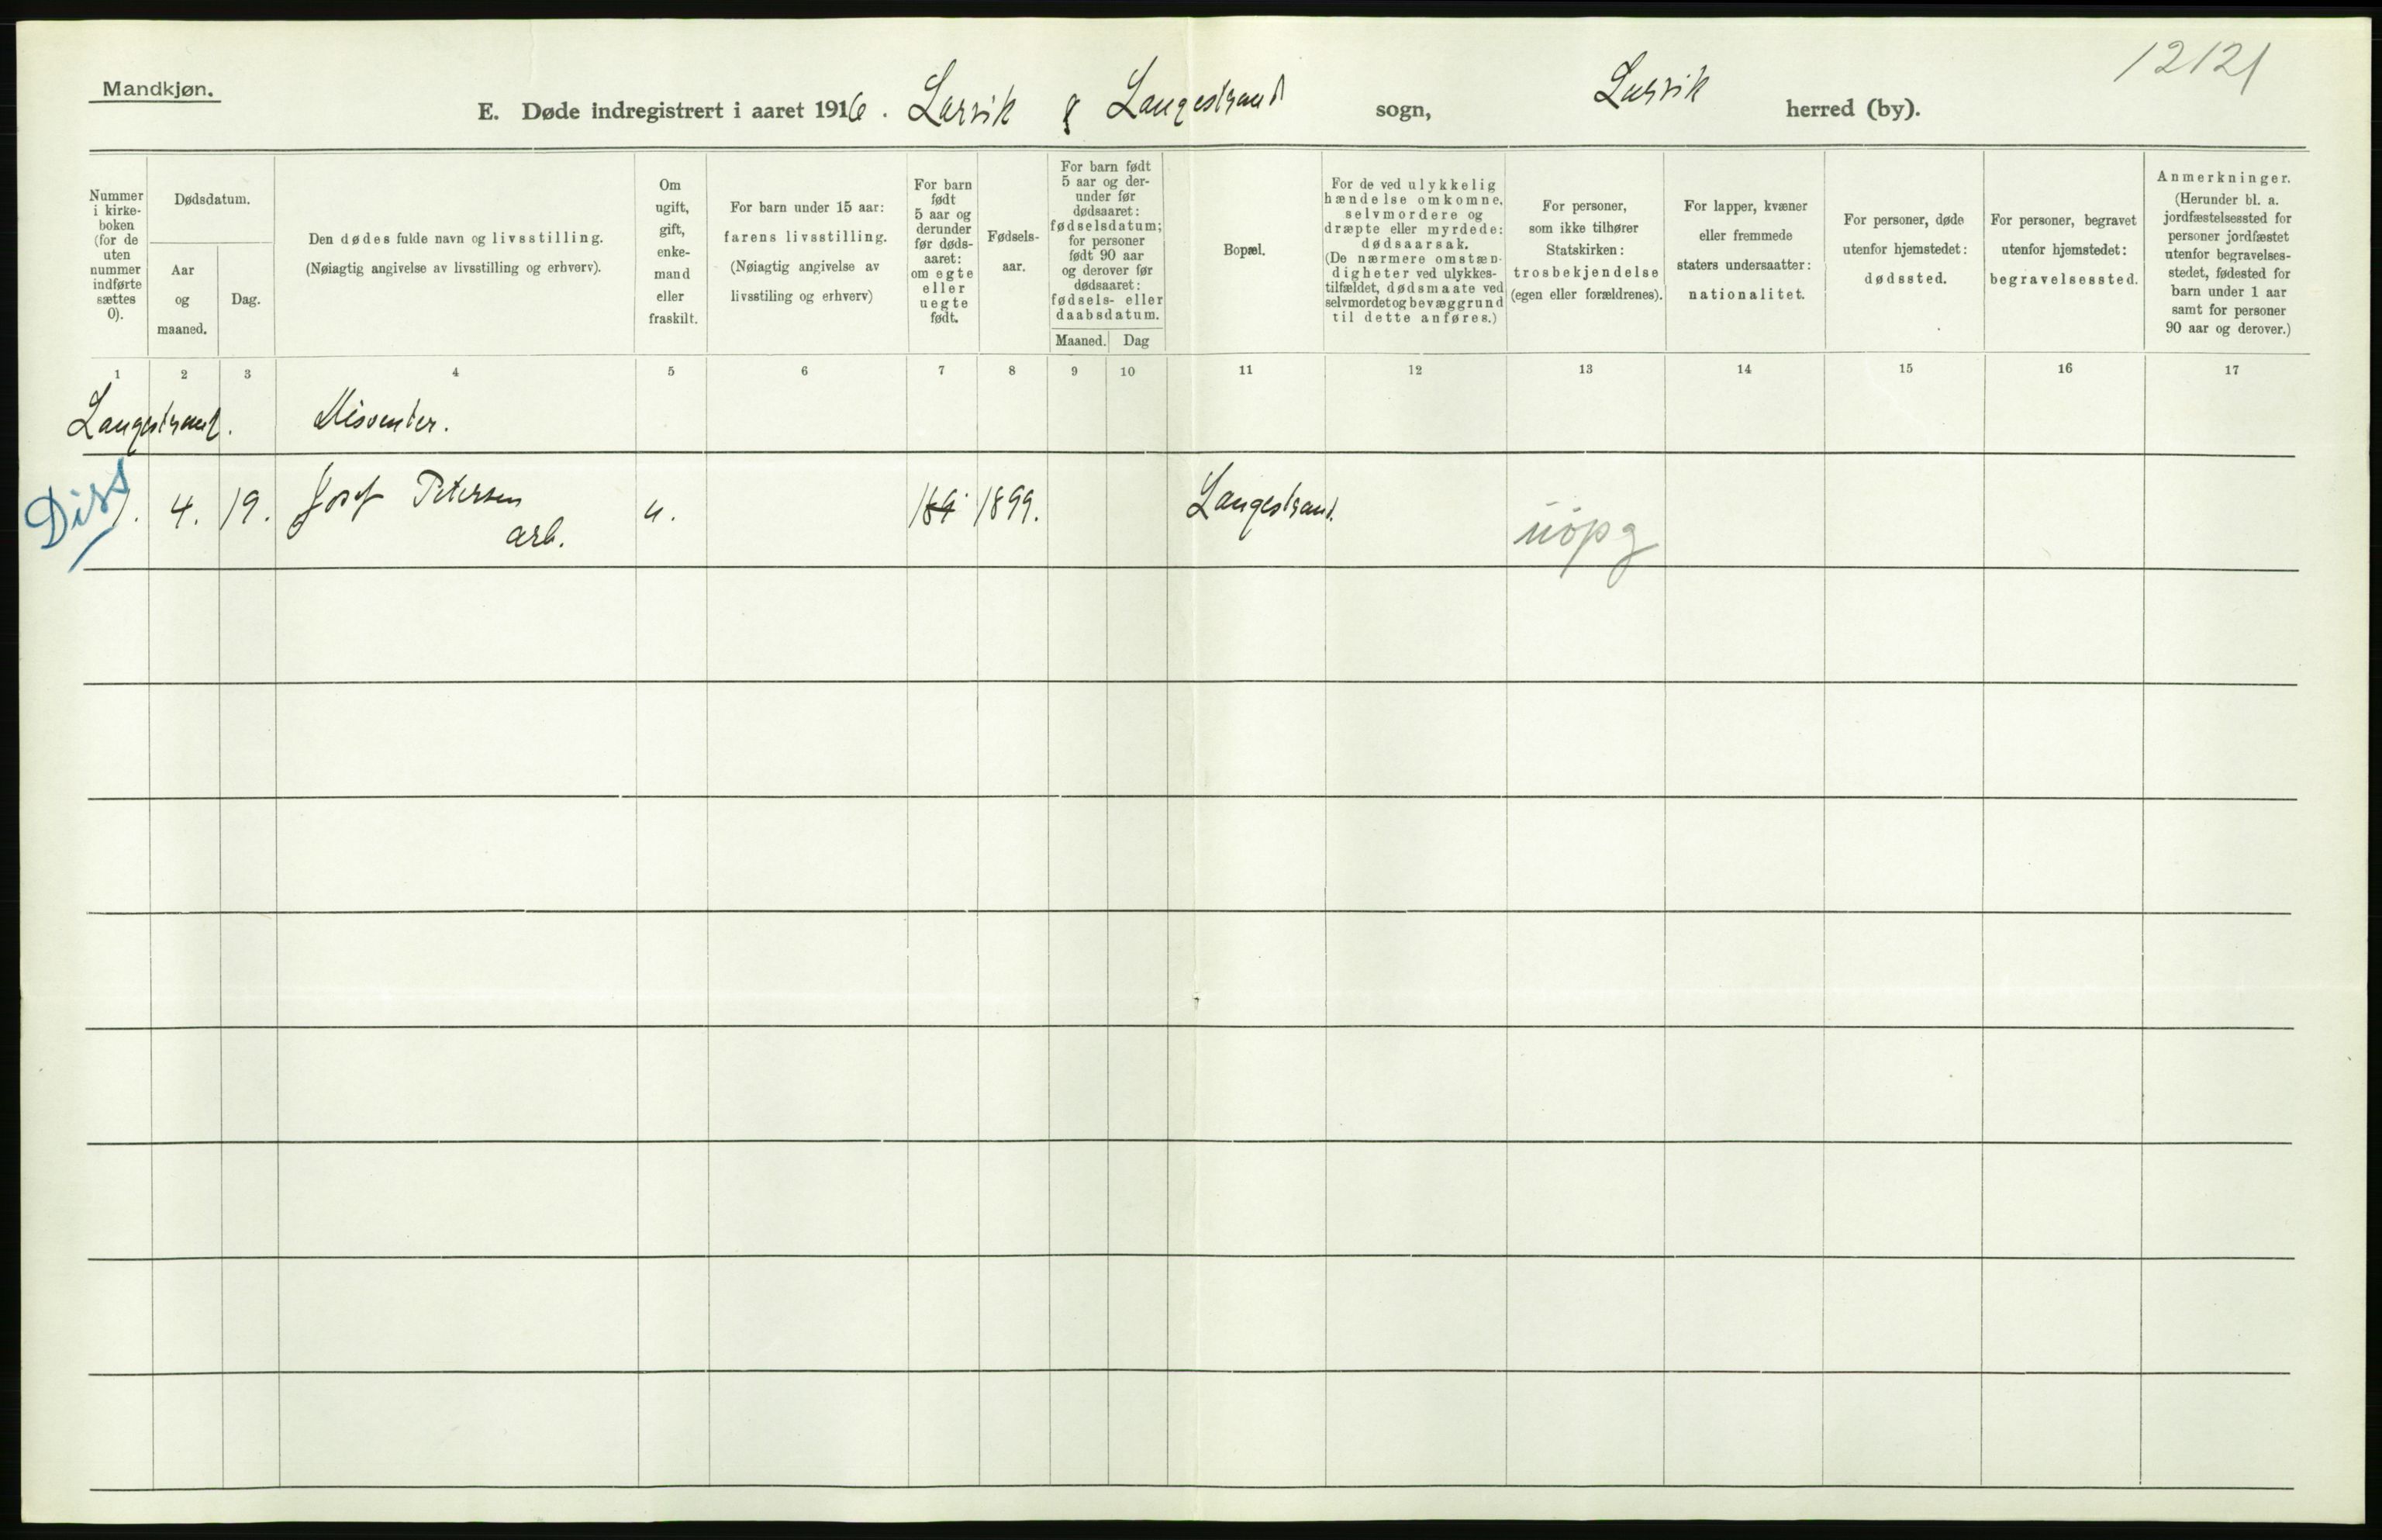 Mandkjøn.
12121
E. Døde indregistrert i aaret 1916. Larvik & Langestrand sogn, Larvik herred (by).
Nummer i kirke- boken (for de uten nummer indførte sættes 0).
Dødsdatum.
Aar og maaned.
Dag.
Den dødes fulde navn og livsstilling.
(Nøiagtig angivelse av livsstilling og erhverv).
Om ugift, gift, enke- mand eller fraskilt.
For barn under 15 aar:
farens livsstilling.
(Nøiagtig angivelse av
livsstiling og erhverv)
For barn født 5 aar og derunder før døds- aaret: om egte eller uegte født.
Fødsels- aar.
For barn født 5 aar og der- under før dødsaaret: fødselsdatum; for personer født 90 aar og derover før dødsaaret: fødsels- eller daabsdatum.
Maaned. Dag
Bopæl.
For de ved ulykkelig hændelse omkomne, selvmordere og dræpte eller myrdede: dødsaarsak. (De nærmere omstæn- digheter ved ulykkes- tilfældet, dødsmaate ved selvmordet og bevæggrund til dette anføres.)
For personer, som ikke tilhører Statskirken: trosbekjendelse (egen eller forældrenes).
For lapper, kvæner eller fremmede staters undersaatter: nationalitet.
For personer, døde utenfor hjemstedet: dødssted.
For personer, begravet utenfor hjemstedet: begravelsessted.
Anmerkninger. (Herunder bl. a. jordfæstelsessted for personer jordfæstet utenfor begravelses- stedet, fødested for barn under 1 aar samt for personer 90 aar og derover.)
1 2 3 4 5 6 7 8 9 10 11 12 13 14 15 16 17
Langestrand. Disenter.
Diss 1. 4. 19. Josef Petersen u. 1899. Langestrand.
arb.
uopg